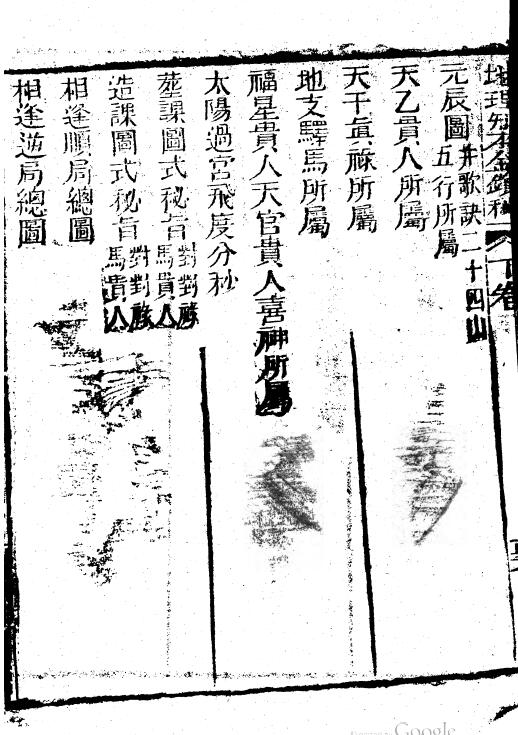 元辰圖并歌訣二十四山五行所屬
天乙貴人所屬
天干眞祿所屬
地支驛馬所屬
福星貴人天官貴人喜神所屬
太陽過宮飛度分秒
塟課圖式秘旨對祿對馬貴人
造課圖式秘旨對祿對馬貴人
相逢順局總圖
相逢逆局總圖
Google